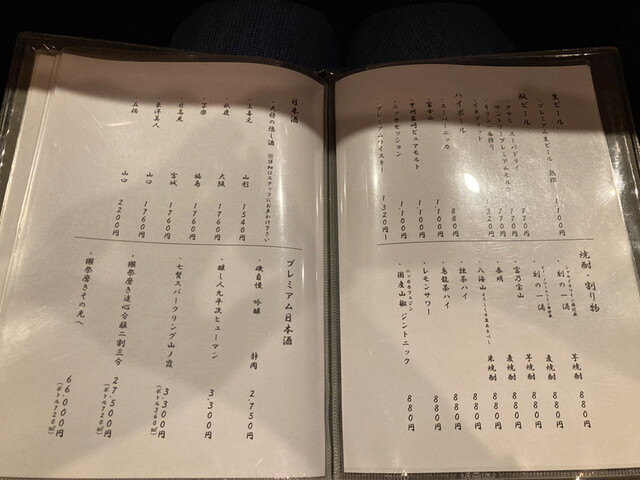 生ビール
・プレミアム生ビール 熟撰 1100円
瓶ビール
・アサヒ スーパードライ 770円
・サントリープレミアムモルツ 770円
・キリン 一番搾り 1320円
ハイボール
・スーパーニッカ 880円
・富士山 1100円
・甲州韮崎ピュアモルト 1100円
・ニッカセッション 1100円
・プレミアムウイスキー 1320円~
焼酎・割り物
・刻の一滴 芋焼酎 880円
・刻の一滴 麦焼酎 880円
・富乃宝山 芋焼酎 880円
麦焼酎 880円
・八海山 米焼酎 880円
・抹茶ハイ 880円
・烏龍茶ハイ 880円
・レモンサワー 880円
ニッカカフェジン
・国産山椒 ジントニック 880円
日本酒
・大将の隠し酒 ※詳細はスタッフにおまかせ下さい
・上喜元 山形 1540円
・秋鹿 大阪 1760円
・写楽 福島 1760円
・日高見 宮城 1760円
・東洋美人 山口 1760円
・五橋 山口 2200円
プレミアム日本酒
・磯自慢 吟醸 静岡 2,750円
・醸し人九平次ヒューマン 3,300円
・七賢スパークリング山ノ霞 3,300円
(ボトル360ml)
・獺祭磨き遠心分離二割三分 27,500円
(ボトル720ml)
・獺祭磨きその先へ 66,000円
(ボトル720ml)